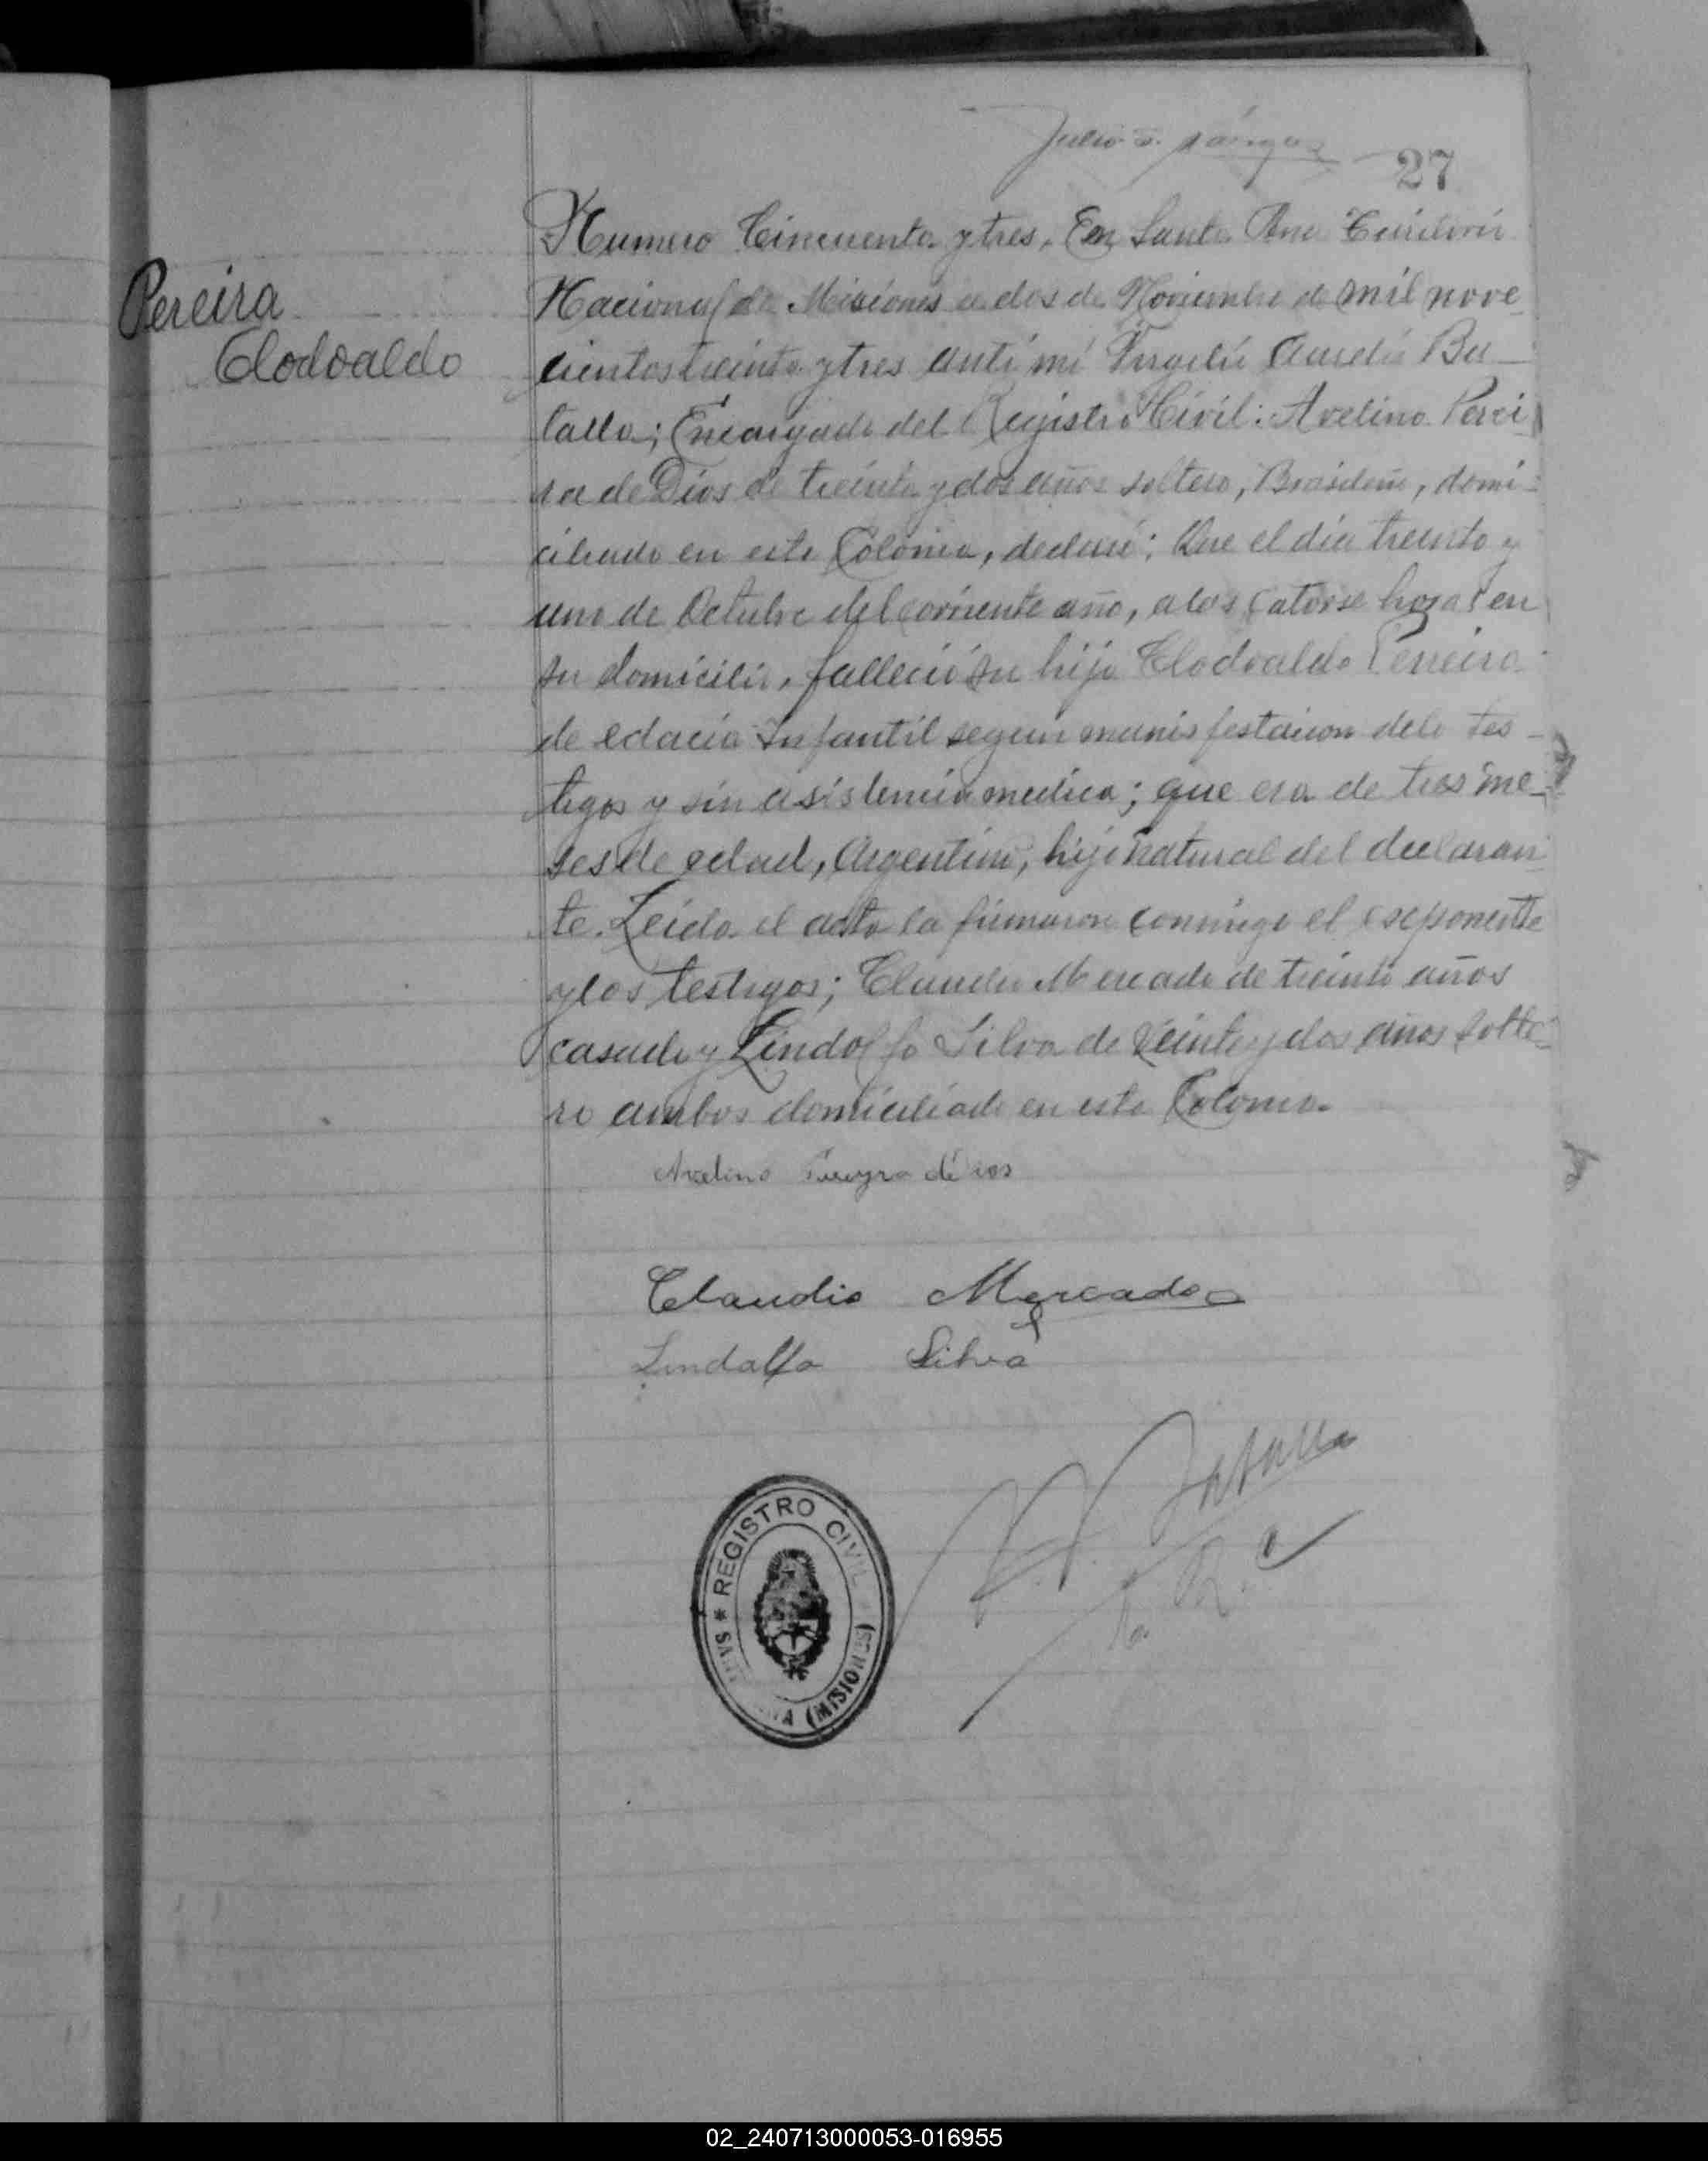 27
Pereira
Clodoaldo
Numero Cincuenta y tres, En Santa Ana Territorio
Nacional de Misiones a dos de Noviembre de mil nove-
cientos treinta y tres ante mí Aurelio Ba-
talla; Encargado del Registro Civil: Avelino Perei
ra de Dios de treinta y dos años soltero, Brasileño, domi-
ciliado en esta Colonia, declaró: Que el día treinta y
uno de Octubre del corriente año, a las catorse horas en
su domicilio, falleció su hijo Clodoaldo Perreira
de edacia Infantil segun manisfestaicon delo tes-
tigos y sin asistencia medica; que era de tres me-
ses de edad, Argentino, hijo natural del declaran
te. Leida el acta la firmaron conmigo el esponente
y los testigos; Claudio Mercado de treinta años
casado y Lindolfo Silva de veinte y dos años solte-
ro ambos domiciliado en esta Colonia.
Avelino
Claudio Mercado
Lindolfo Silva
REGISTRO CIVIL
(MISIONES)
02_240713000053-016955